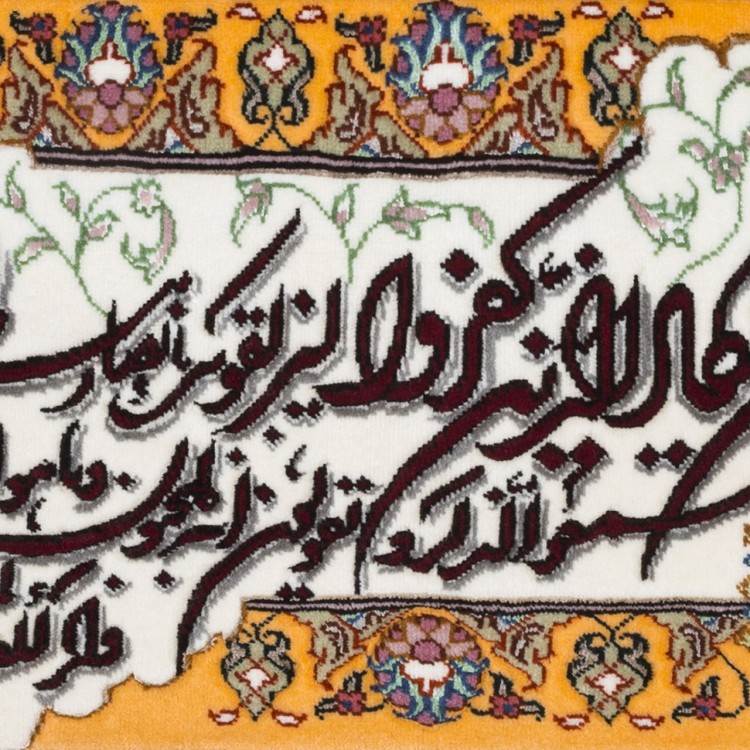 یکاد الذین کفروا لیزلقونک بابصار
سمعوا الذکر و یقولون انه لمجنون و ما هو
ذکر للعا